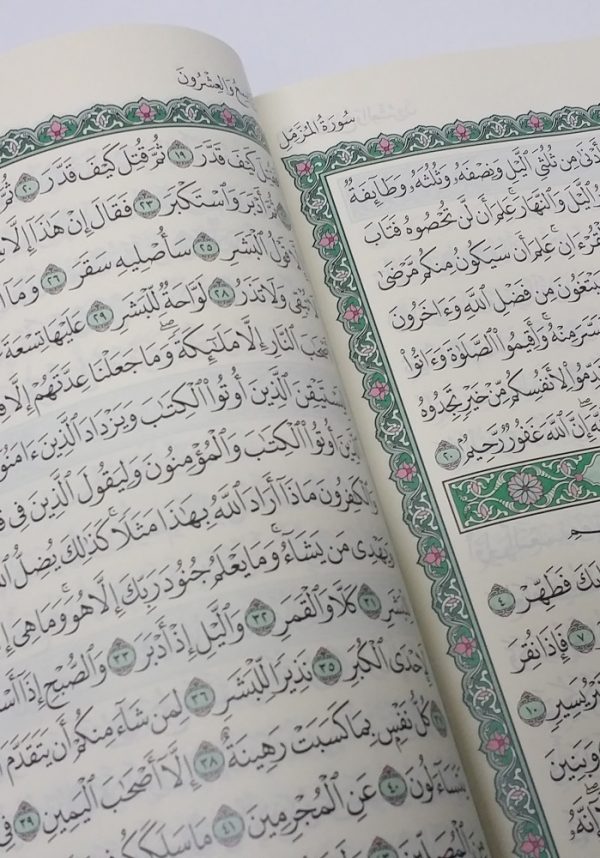 سُورَةُ المُزَّمِّل
أَدْنَىٰ مِن ثُلُثَيِ ٱلَّيْلِ وَنِصْفَهُۥ وَثُلُثَهُۥ وَطَآئِفَةٌ
ٱلَّيْلَ وَٱلنَّهَارَ عَلِمَ أَن لَّن تُحْصُوهُ فَتَابَ
عَلِمَ أَن سَيَكُونُ مِنكُم مَّرْضَىٰ
يَبْتَغُونَ مِن فَضْلِ ٱللَّهِ وَءَاخَرُونَ
مِنْهُ وَأَقِيمُوا۟ ٱلصَّلَوٰةَ وَءَاتُوا۟
لِأَنفُسِكُم مِّنْ خَيْرٍ تَجِدُوهُ
إِنَّ ٱللَّهَ غَفُورٌ رَّحِيمٌ ٢٠
فَطَهِّرْ ٤
٧ فَإِذَا نُقِرَ
يَسِيرٍ ١٠
وَبَنِينَ
إِنَّهُۥ
وَالعِشْرُونَ
كَيْفَ قَدَّرَ ١٩ ثُمَّ قُتِلَ كَيْفَ قَدَّرَ ٢٠ ثُمَّ
ثُمَّ أَدْبَرَ وَٱسْتَكْبَرَ ٢٣ فَقَالَ إِنْ هَٰذَآ إِلَّا
قَوْلُ ٱلْبَشَرِ ٢٥ سَأُصْلِيهِ سَقَرَ ٢٦ وَمَآ
وَلَا تَذَرُ ٢٨ لَوَّاحَةٌ لِّلْبَشَرِ ٢٩ عَلَيْهَا تِسْعَةَ
ٱلنَّارِ إِلَّا مَلَٰٓئِكَةً وَمَا جَعَلْنَا عِدَّتَهُمْ إِلَّا
ٱلَّذِينَ أُوتُوا۟ ٱلْكِتَٰبَ وَيَزْدَادَ ٱلَّذِينَ ءَامَنُوٓا۟
أُوتُوا۟ ٱلْكِتَٰبَ وَٱلْمُؤْمِنُونَ وَلِيَقُولَ ٱلَّذِينَ فِى
وَٱلْكَٰفِرُونَ مَاذَآ أَرَادَ ٱللَّهُ بِهَٰذَا مَثَلًا كَذَٰلِكَ يُضِلُّ ٱللَّهُ
وَيَهْدِى مَن يَشَآءُ وَمَا يَعْلَمُ جُنُودَ رَبِّكَ إِلَّا هُوَ وَمَا هِىَ
٣١ كَلَّا وَٱلْقَمَرِ ٣٢ وَٱلَّيْلِ إِذْ أَدْبَرَ ٣٣ وَٱلصُّبْحِ إِذَآ
لَإِحْدَى ٱلْكُبَرِ ٣٥ نَذِيرًا لِّلْبَشَرِ ٣٦ لِمَن شَآءَ مِنكُمْ أَن يَتَقَدَّمَ
كُلُّ نَفْسٍۭ بِمَا كَسَبَتْ رَهِينَةٌ ٣٨ إِلَّآ أَصْحَٰبَ ٱلْيَمِينِ ٣٩ فِى
يَتَسَآءَلُونَ ٤٠ عَنِ ٱلْمُجْرِمِينَ ٤١ مَا سَلَكَكُمْ
ٱلْمُصَلِّينَ